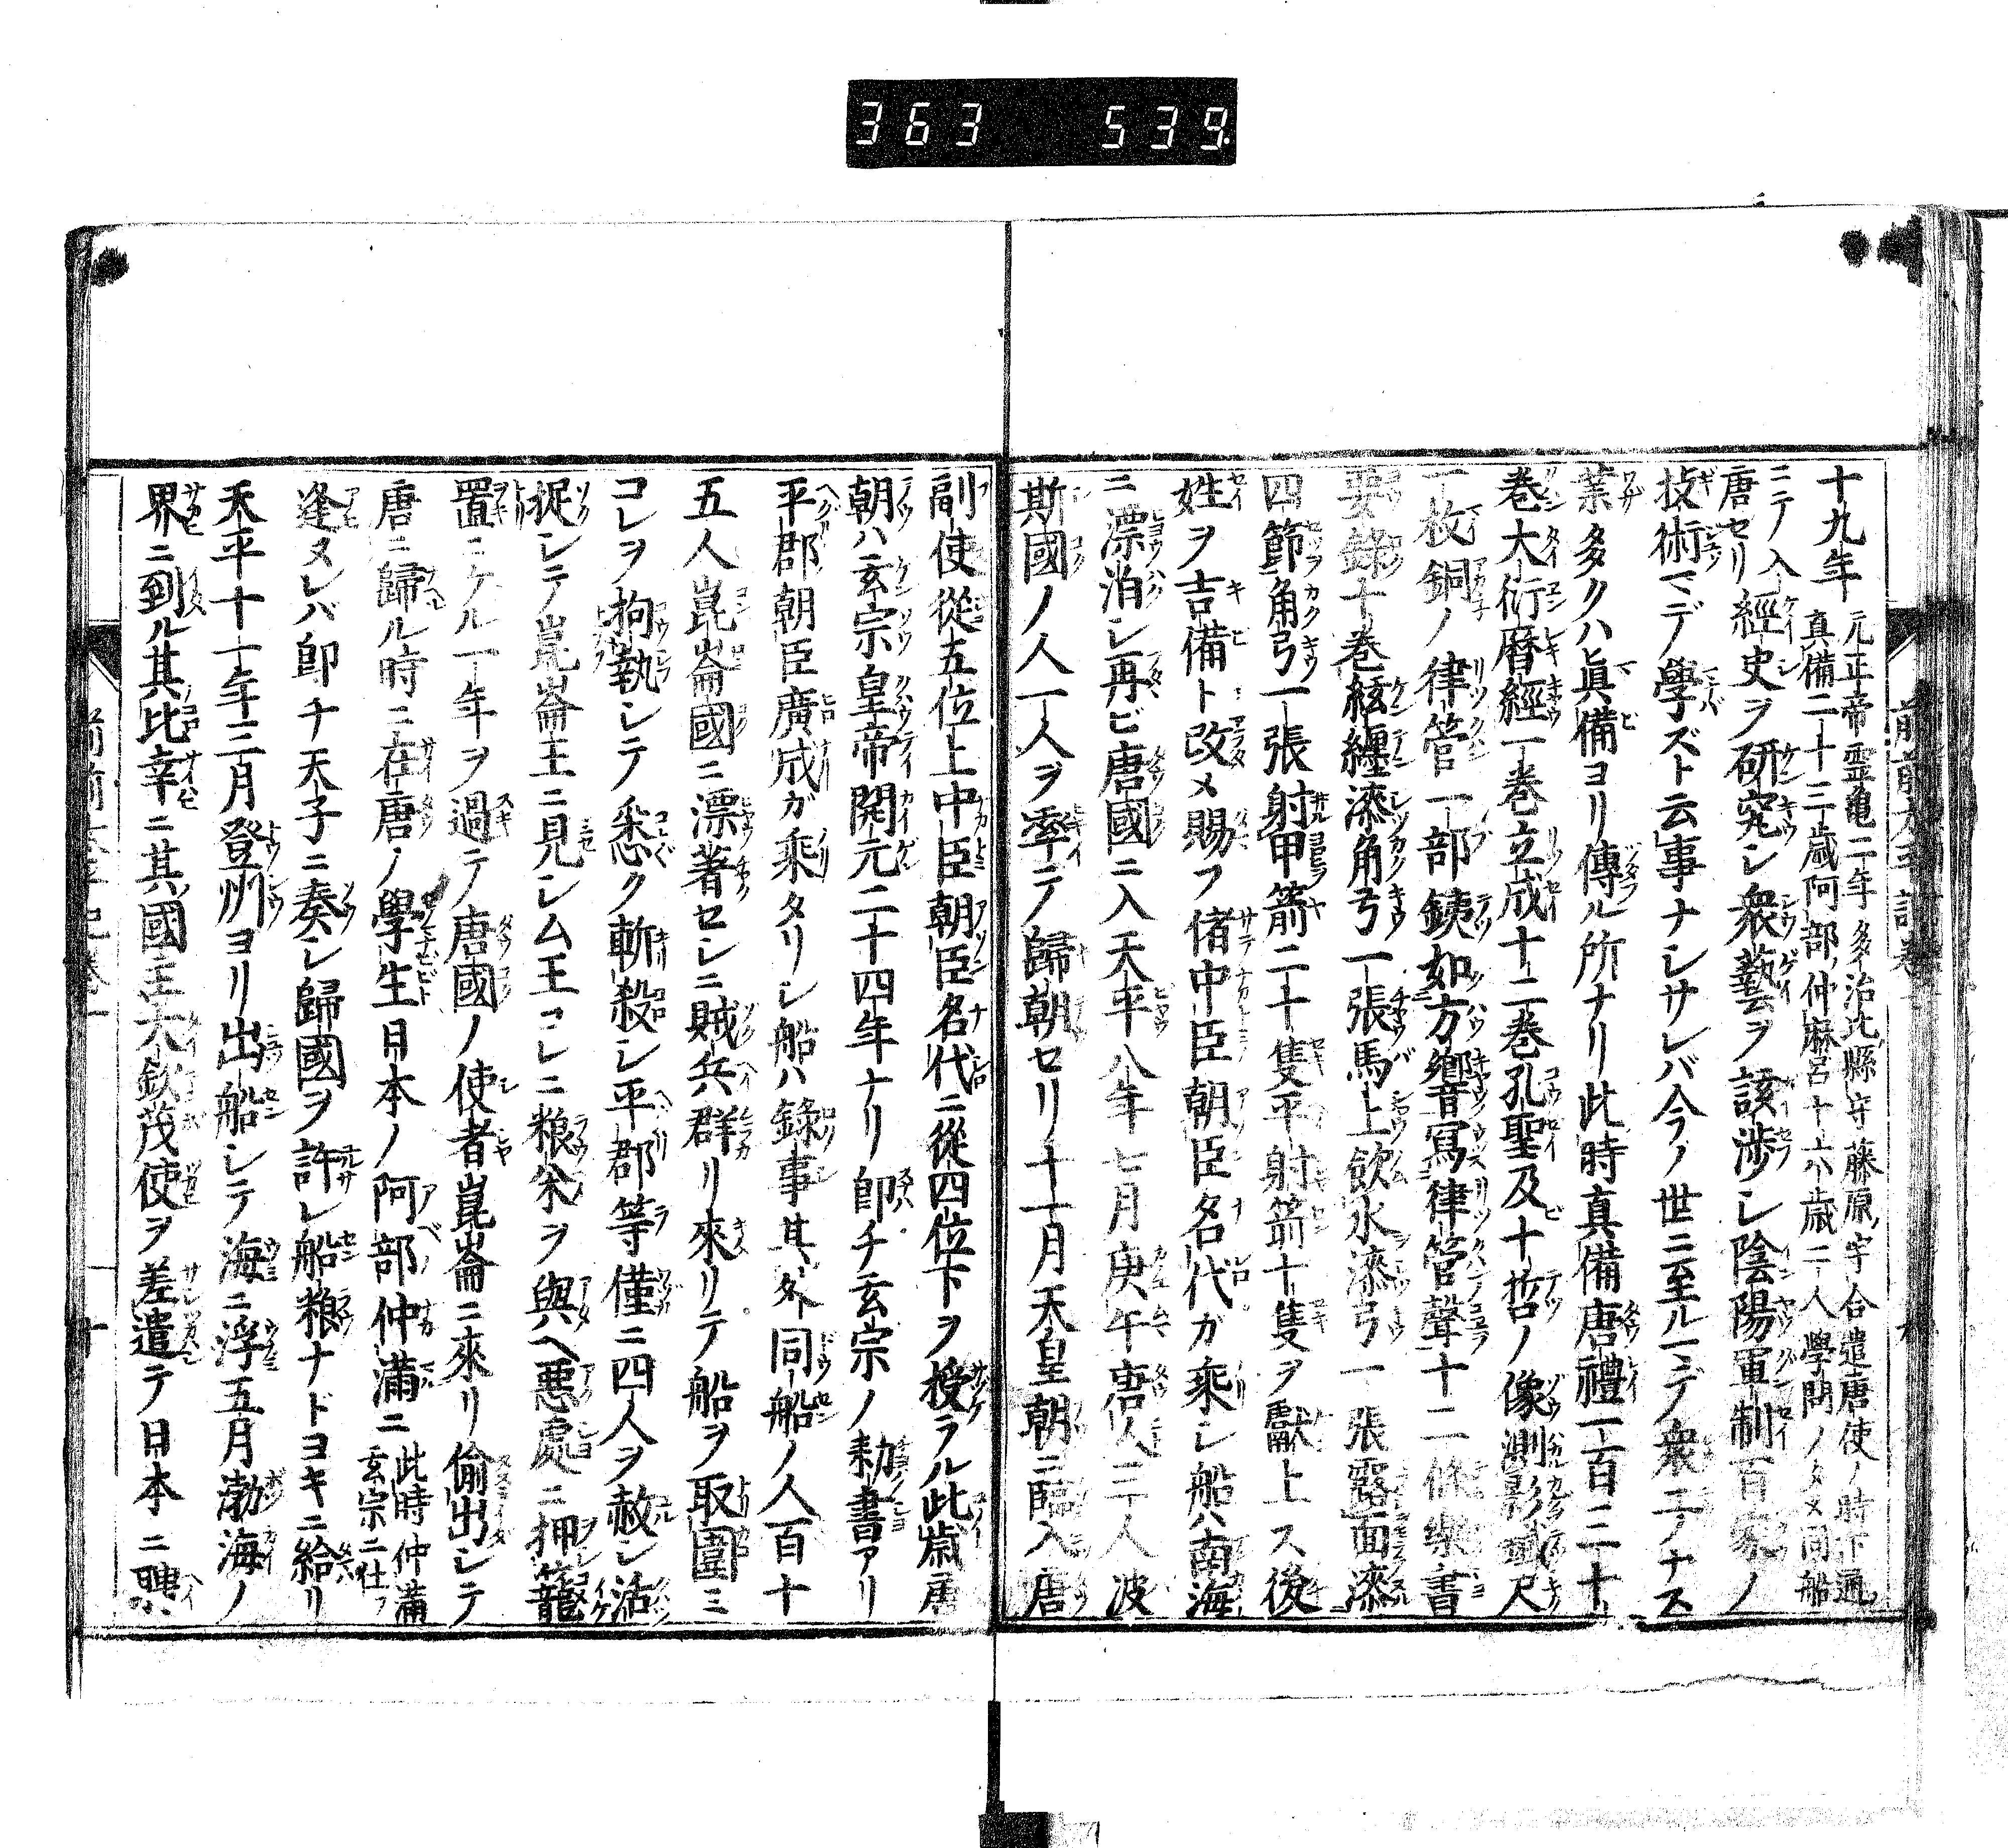 363 539
十九年元正帝霊亀二年多治比縣守藤原宇合遣唐使ノ時下道真備二十三歳阿部仲麻呂十六歳二人學問ノタメ同船
ニテ入唐セリ經史ヲ研究シ衆藝ヲ該渉シ陰陽軍制百家ノ
技術マデ學ズト云事ナシサレバ今ノ世ニ至ルマデ衆ニナス
業多クハ眞備ヨリ傳ル所ナリ此時真備唐禮一百三十
巻大衍暦經一巻立成十二巻孔聖及十哲ノ像測影鐵尺
一枚銅ノ律管一部鐵如方響寫律管聲十二條樂書
要錄十巻絃纏漆角弓一張馬上飲水漆弓一張露面漆
四節角弓一張射甲箭二十隻平射箭十隻ヲ獻上ス後
姓ヲ吉備ト改メ賜フ偖中臣朝臣名代ガ乘シ船ハ南海
ニ漂泊シ再ビ唐國ニ入天平八年七月庚午唐人三人波
斯國ノ人一人ヲ率テ歸朝セリ十一月天皇朝ニ臨入唐
副使從五位上中臣朝臣名代ニ從四位下ヲ授ラル此歳唐
朝ハ玄宗皇帝開元二十四年ナリ卽チ玄宗ノ勅書アリ
平郡朝臣廣成ガ乘タリシ船ハ錄事其外同船ノ人百十
五人崑崙國ニ漂著セシニ賊兵群リ來リテ船ヲ取圍ミ
コレヲ拘執シテ悉ク斬殺シ平郡等僅ニ四人ヲ赦シ活
捉シテ崑崙王ニ見シム王コレニ粮米ヲ與ヘ悪處ニ押籠
置ニケル一年ヲ過テ唐國ノ使者崑崙ニ來リ偷出シテ
唐ニ歸ル時ニ在唐ノ學生日本ノ阿部仲滿ニ此時仲滿玄宗ニ仕フ
逢ヌレバ卽チ天子ニ奏シ歸國ヲ許シ船粮ナドヨキニ給リ
天平十一年三月登州ヨリ出船シテ海ニ浮五月渤海ノ
界ニ到ル其比幸ニ其國王大欽茂使ヲ差遣テ日本ニ聘